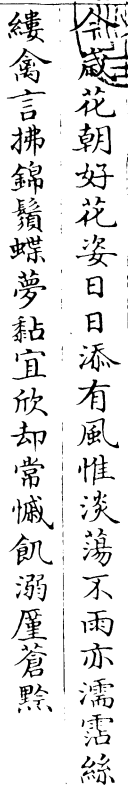 今歲花朝好花姿日日添有風惟淡蕩不雨亦濡霑絲
縷禽言拂錦鬚蝶夢黏宜欣却常慽飢溺廑蒼黔